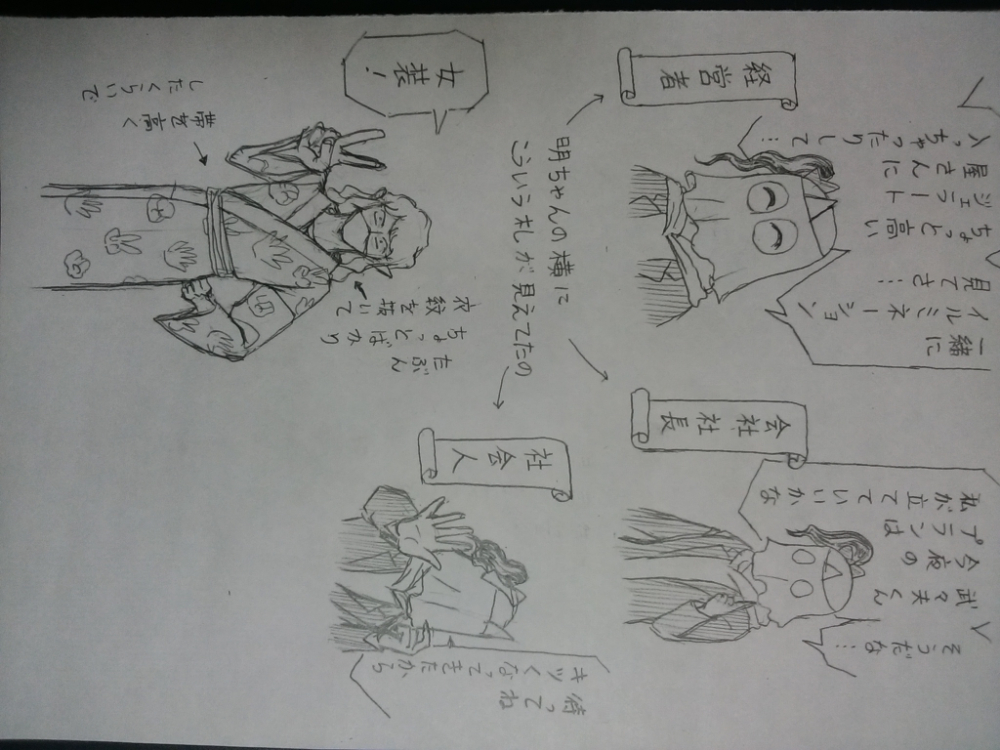 そうだな…
武々夫くん
今夜の
プランは
私が立てていいかな
会社社長
一緒に
イルミネーション
見てさ…
ちょっと高い
ジェラート
屋さんに
入っちゃったりして…
経営者
明ちゃんの横に
こういう札が見えてたの
待ってね
キツくなってきたから
社会人
女装!
たぶん
ちょっとばかり
衣紋を抜いて
帯を高く
したくらいで